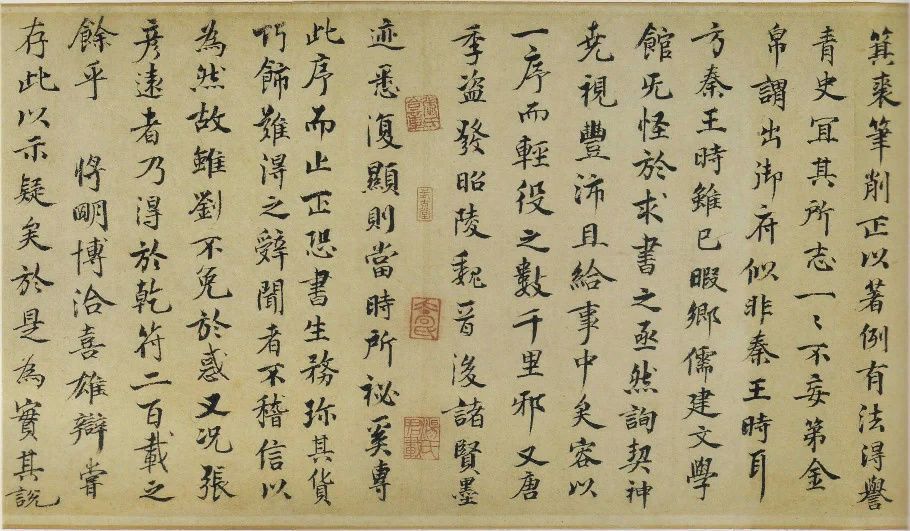 箕裘筆削正以著例有法得譽
青史宜其所志一々不妄第金
帛謂出御府似非秦王時耳
方秦王時雖已暇鄉儒建文學
館旡怪於求書之亟然詢契神
堯視豐沛且給事中矣容以
一序而輕役之數千里邪又唐
季盜發昭陵魏晉後諸賢墨
迹悉復顯則當時所祕奚專
此序而止正恐書生務珎其貨
巧飾難得之辭聞者不稽信以
為然故雖劉不免於惑又況張
彥遠者乃得於乾符二百載之
餘乎 將明博洽喜雄辯甞
存此以示疑矣於是為實其說